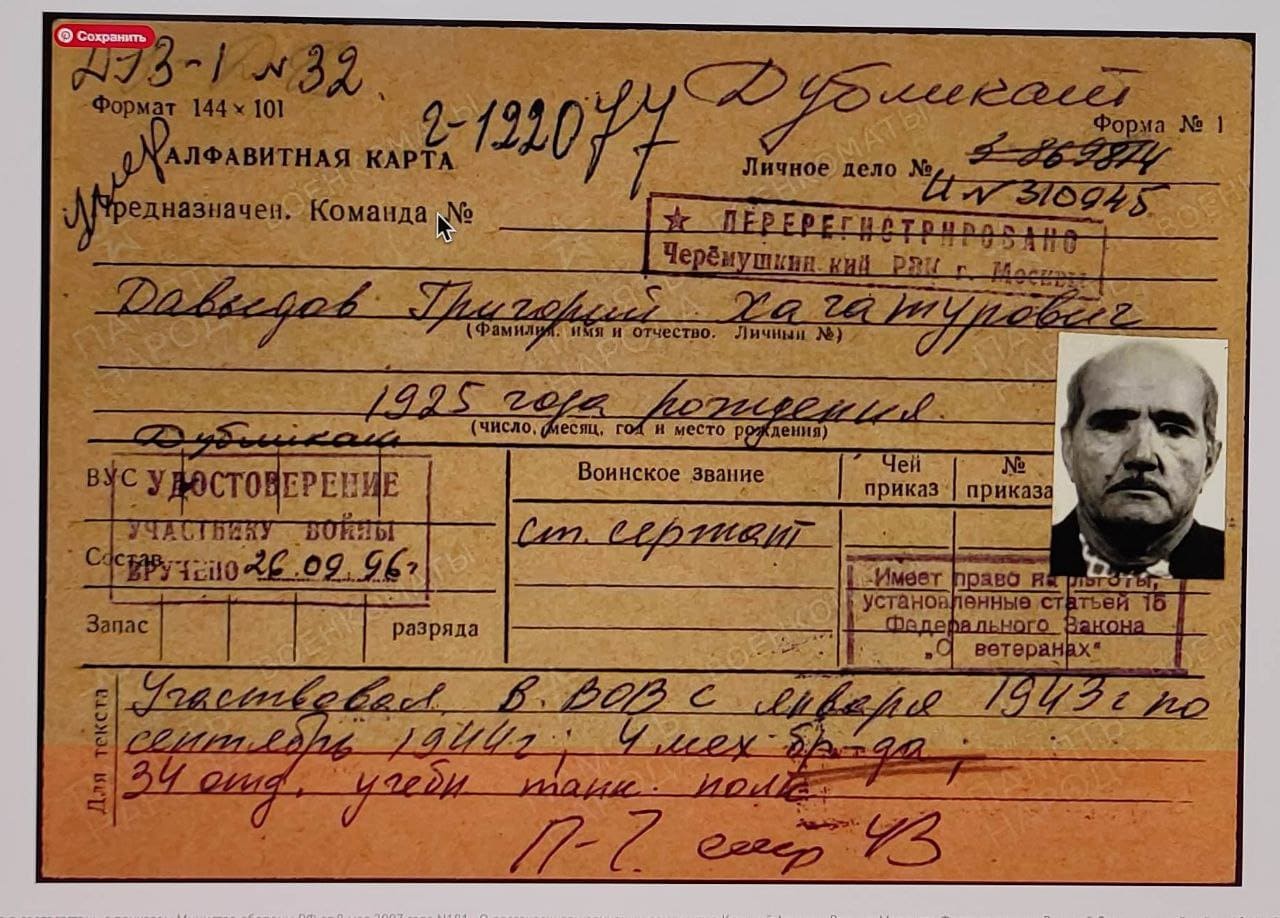 Сохранить
ДВЗ-1 № 32.
Дубликат
Формат 144 × 101
г-122077
Форма № 1
умер
АЛФАВИТНАЯ КАРТА
Личное дело № 3-869814
И № 310945
Предназначен. Команда №
ПЕРЕРЕГИСТРИРОВАНО
Черёмушкинский РВК г. Москвы
Давыдов Григорий Хачатурович
(Фамилия, имя и отчество. Личный №)
1925 года рождения
(число, месяц, год и место рождения)
Дубликат
ВУС
УДОСТОВЕРЕНИЕ
УЧАСТНИКУ ВОЙНЫ
Состав
ВРУЧЕНО 26.09.96г
Запас разряда
Воинское звание
Чей приказ
№ приказа
ст. сержант
Имеет право на льготы,
установленные статьей 15
Федерального Закона
„О ветеранах"
Для текста
Участвовал в ВОВ с января 1943г по
сентябрь 1944г; 4 мех бр-да,
34 отд. учебн танк. полк
П-7 стр 43
ПАМЯТЬ НАРОДА
ВОЕНКОМАТЫ